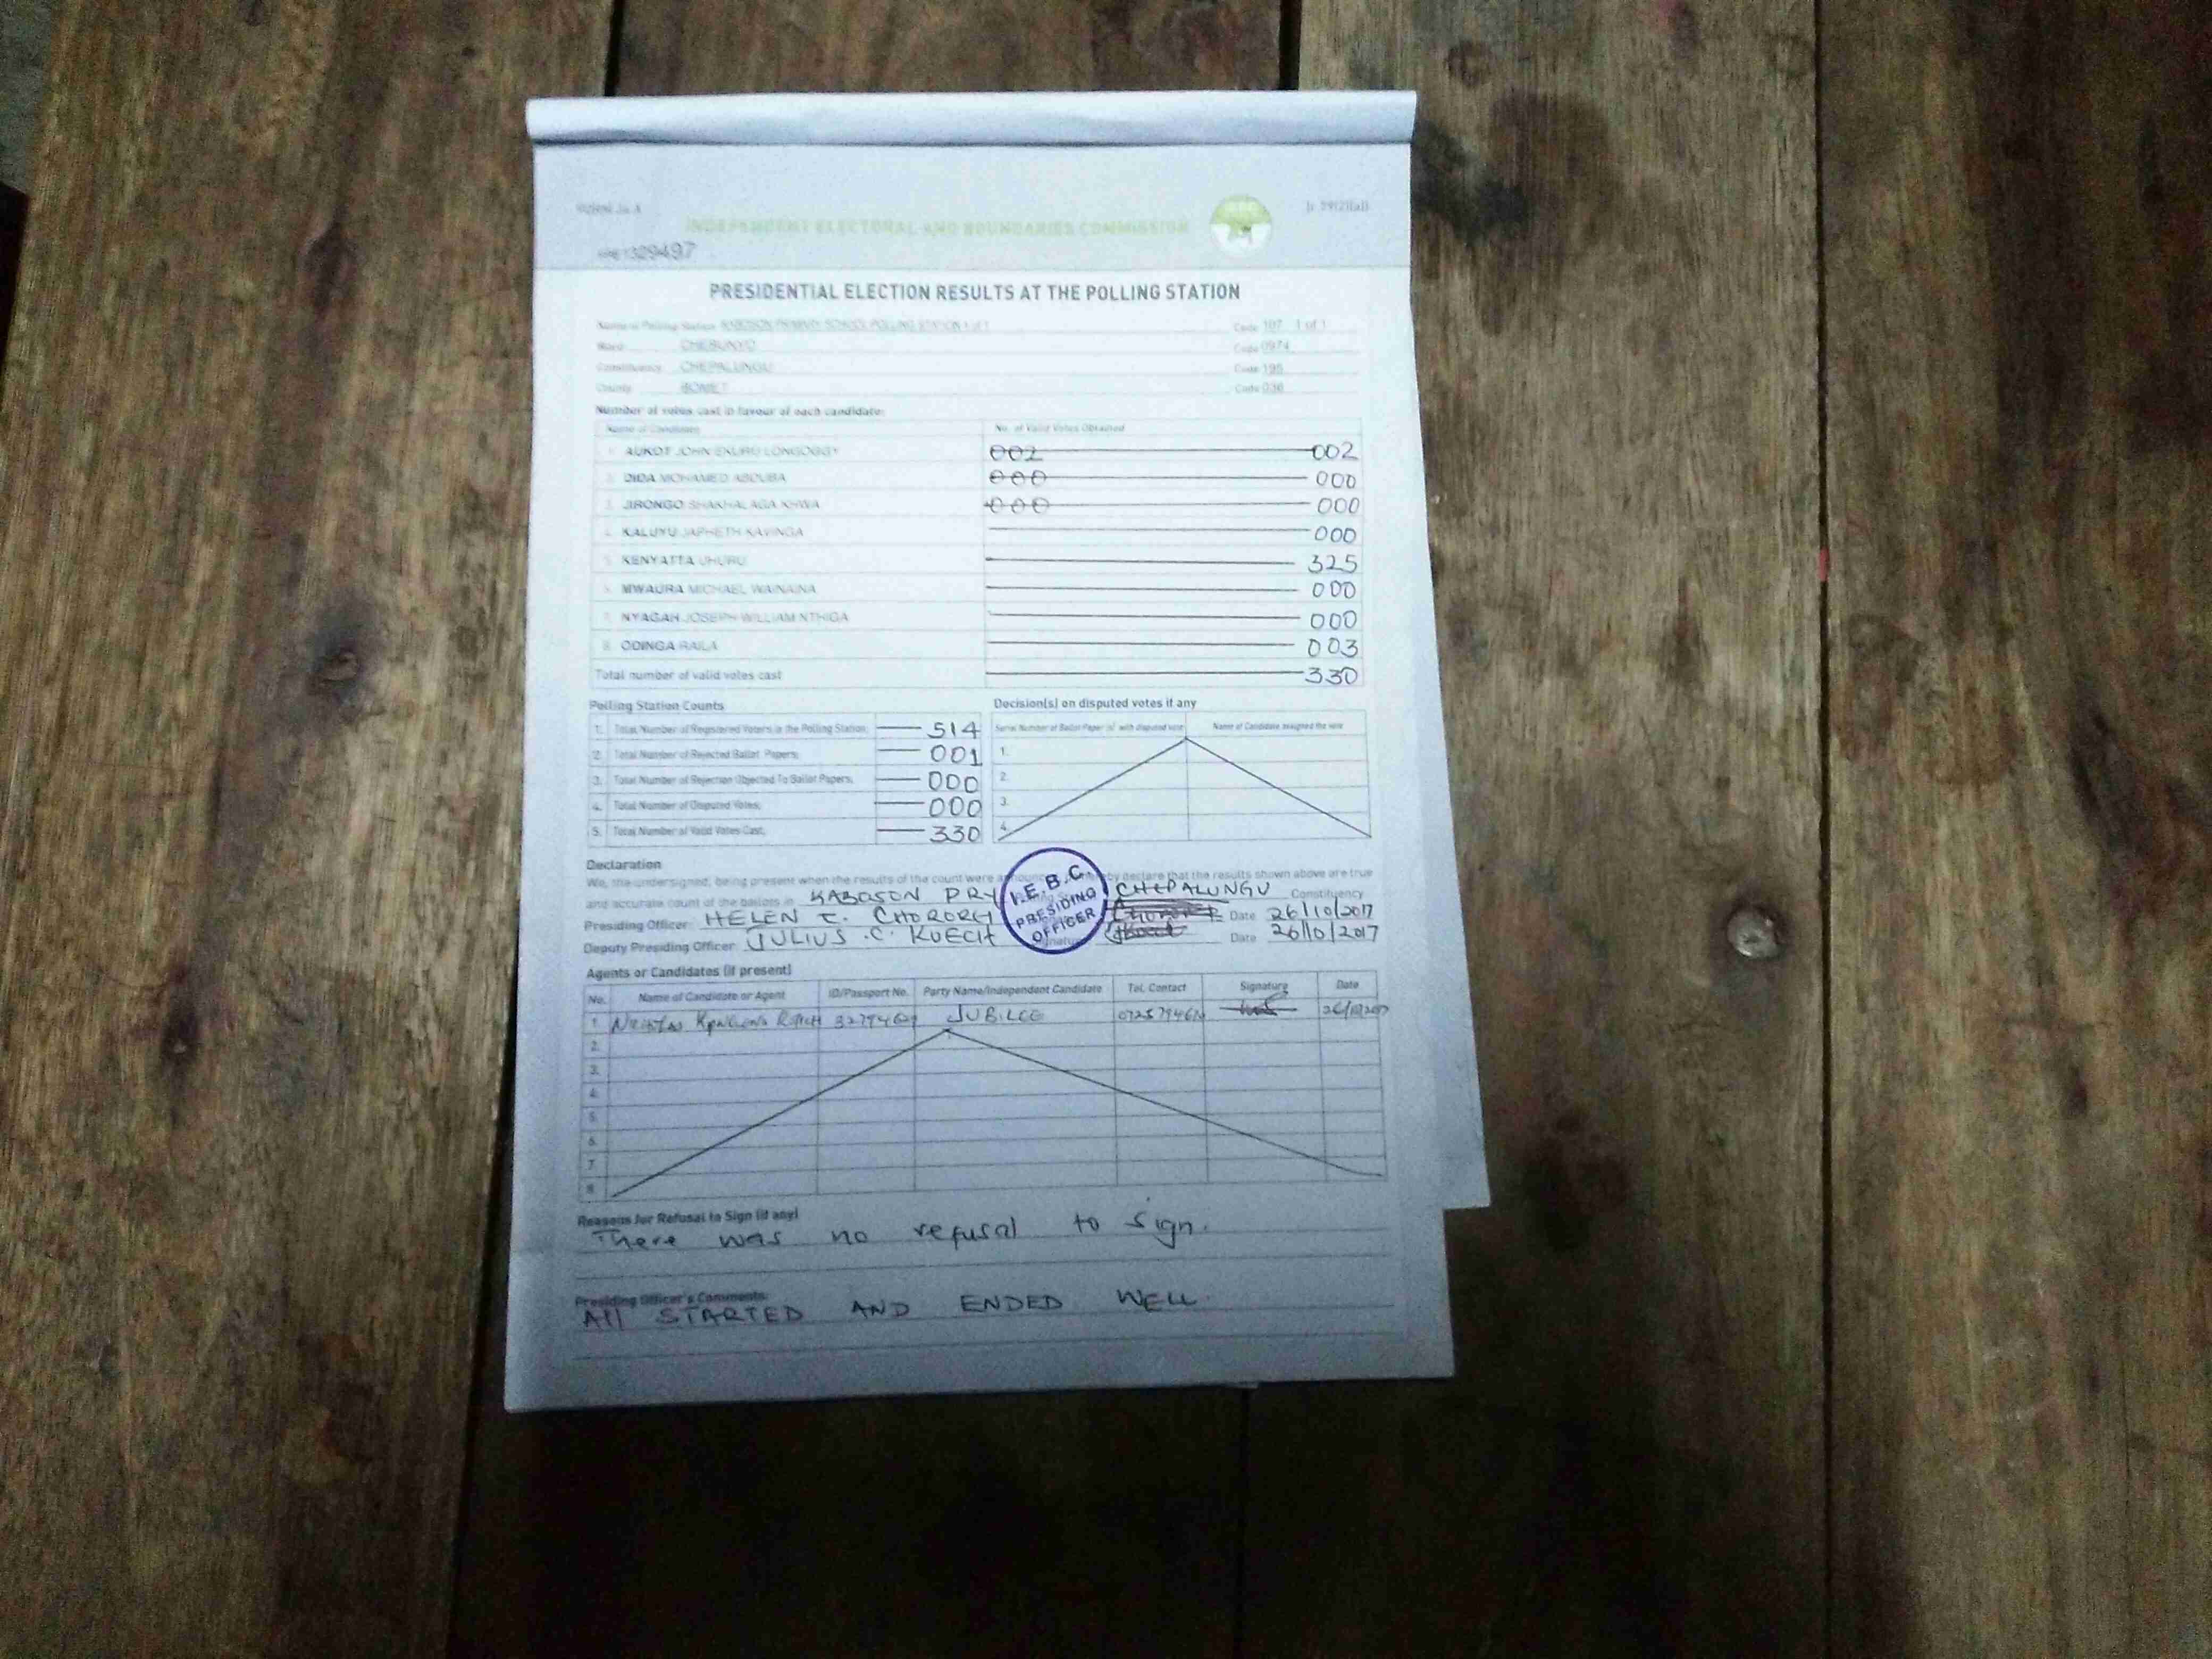 FORM 34 A
r. 79(2)(a)
INDEPENDENT ELECTORAL AND BOUNDARIES COMMISSION
1309497
PRESIDENTIAL ELECTION RESULTS AT THE POLLING STATION
Name of Polling Station KABOSON PRIMARY SCHOOL POLLING STATION 1 of 1 Code 107 1 of 1
Ward CHEBUNYO Code 0974
Constituency CHEPALUNGU Code 195
County BOMET Code 036
Number of votes cast in favour of each candidate:
Name of Candidate No. of Valid Votes Obtained
1. AUKOT JOHN EKURU LONGOGGY 002 002
2. DIDA MOHAMED ABDUBA 000 000
3. JIRONGO SHAKHALAGA KHWA 000 000
4. KALUYU JAPHETH KAVINGA 000
5. KENYATTA UHURU 325
6. MWAURA MICHAEL WAINAINA 000
7. NYAGAH JOSEPH WILLIAM NTHIGA 000
8. ODINGA RAILA 003
Total number of valid votes cast 330
Polling Station Counts
1. Total Number of Registered Voters in the Polling Station; 514
2. Total Number of Rejected Ballot Papers; 001
3. Total Number of Rejection Objected To Ballot Papers; 000
4. Total Number of Disputed Votes; 000
5. Total Number of Valid Votes Cast; 330
Decision(s) on disputed votes if any
Serial Number of Ballot Paper (s) with disputed vote Name of Candidate assigned the vote
1.
2.
3.
4.
Declaration
We, the undersigned, being present when the results of the count were declare that the results shown above are true
and accurate count of the ballots in KABOSON PRY CHEPALUNGU Constituency
I.E.B.C
PRESIDING
OFFICER
Presiding Officer: HELEN C. Date 26/10/2017
Deputy Presiding Officer: JULIUS .C. KOECH Signature Date 26/10/2017
Agents or Candidates (if present)
No. Name of Candidate or Agent ID/Passport No. Party Name/Independent Candidate Tel. Contact Signature Date
1. JUBILEE
2.
3.
4.
5.
6.
7.
8.
Reasons for Refusal to Sign (if any)
There was no refusal to sign.
Presiding Officer's Comments:
All STARTED AND ENDED WELL.